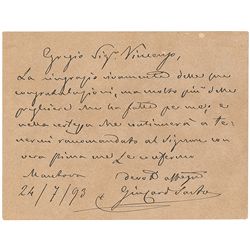 Gregio Sigr Vincenzo,
La ringrazio vivamente delle sue
congratulazioni, ma molto più delle
preghiere che ha fatto per me, e
nella certezza che continuerà a te-
nermi raccomandato al Signore con
vera stima me Le confermo
Mantova devot affezmo
24/7/93 Giu Card Sarto